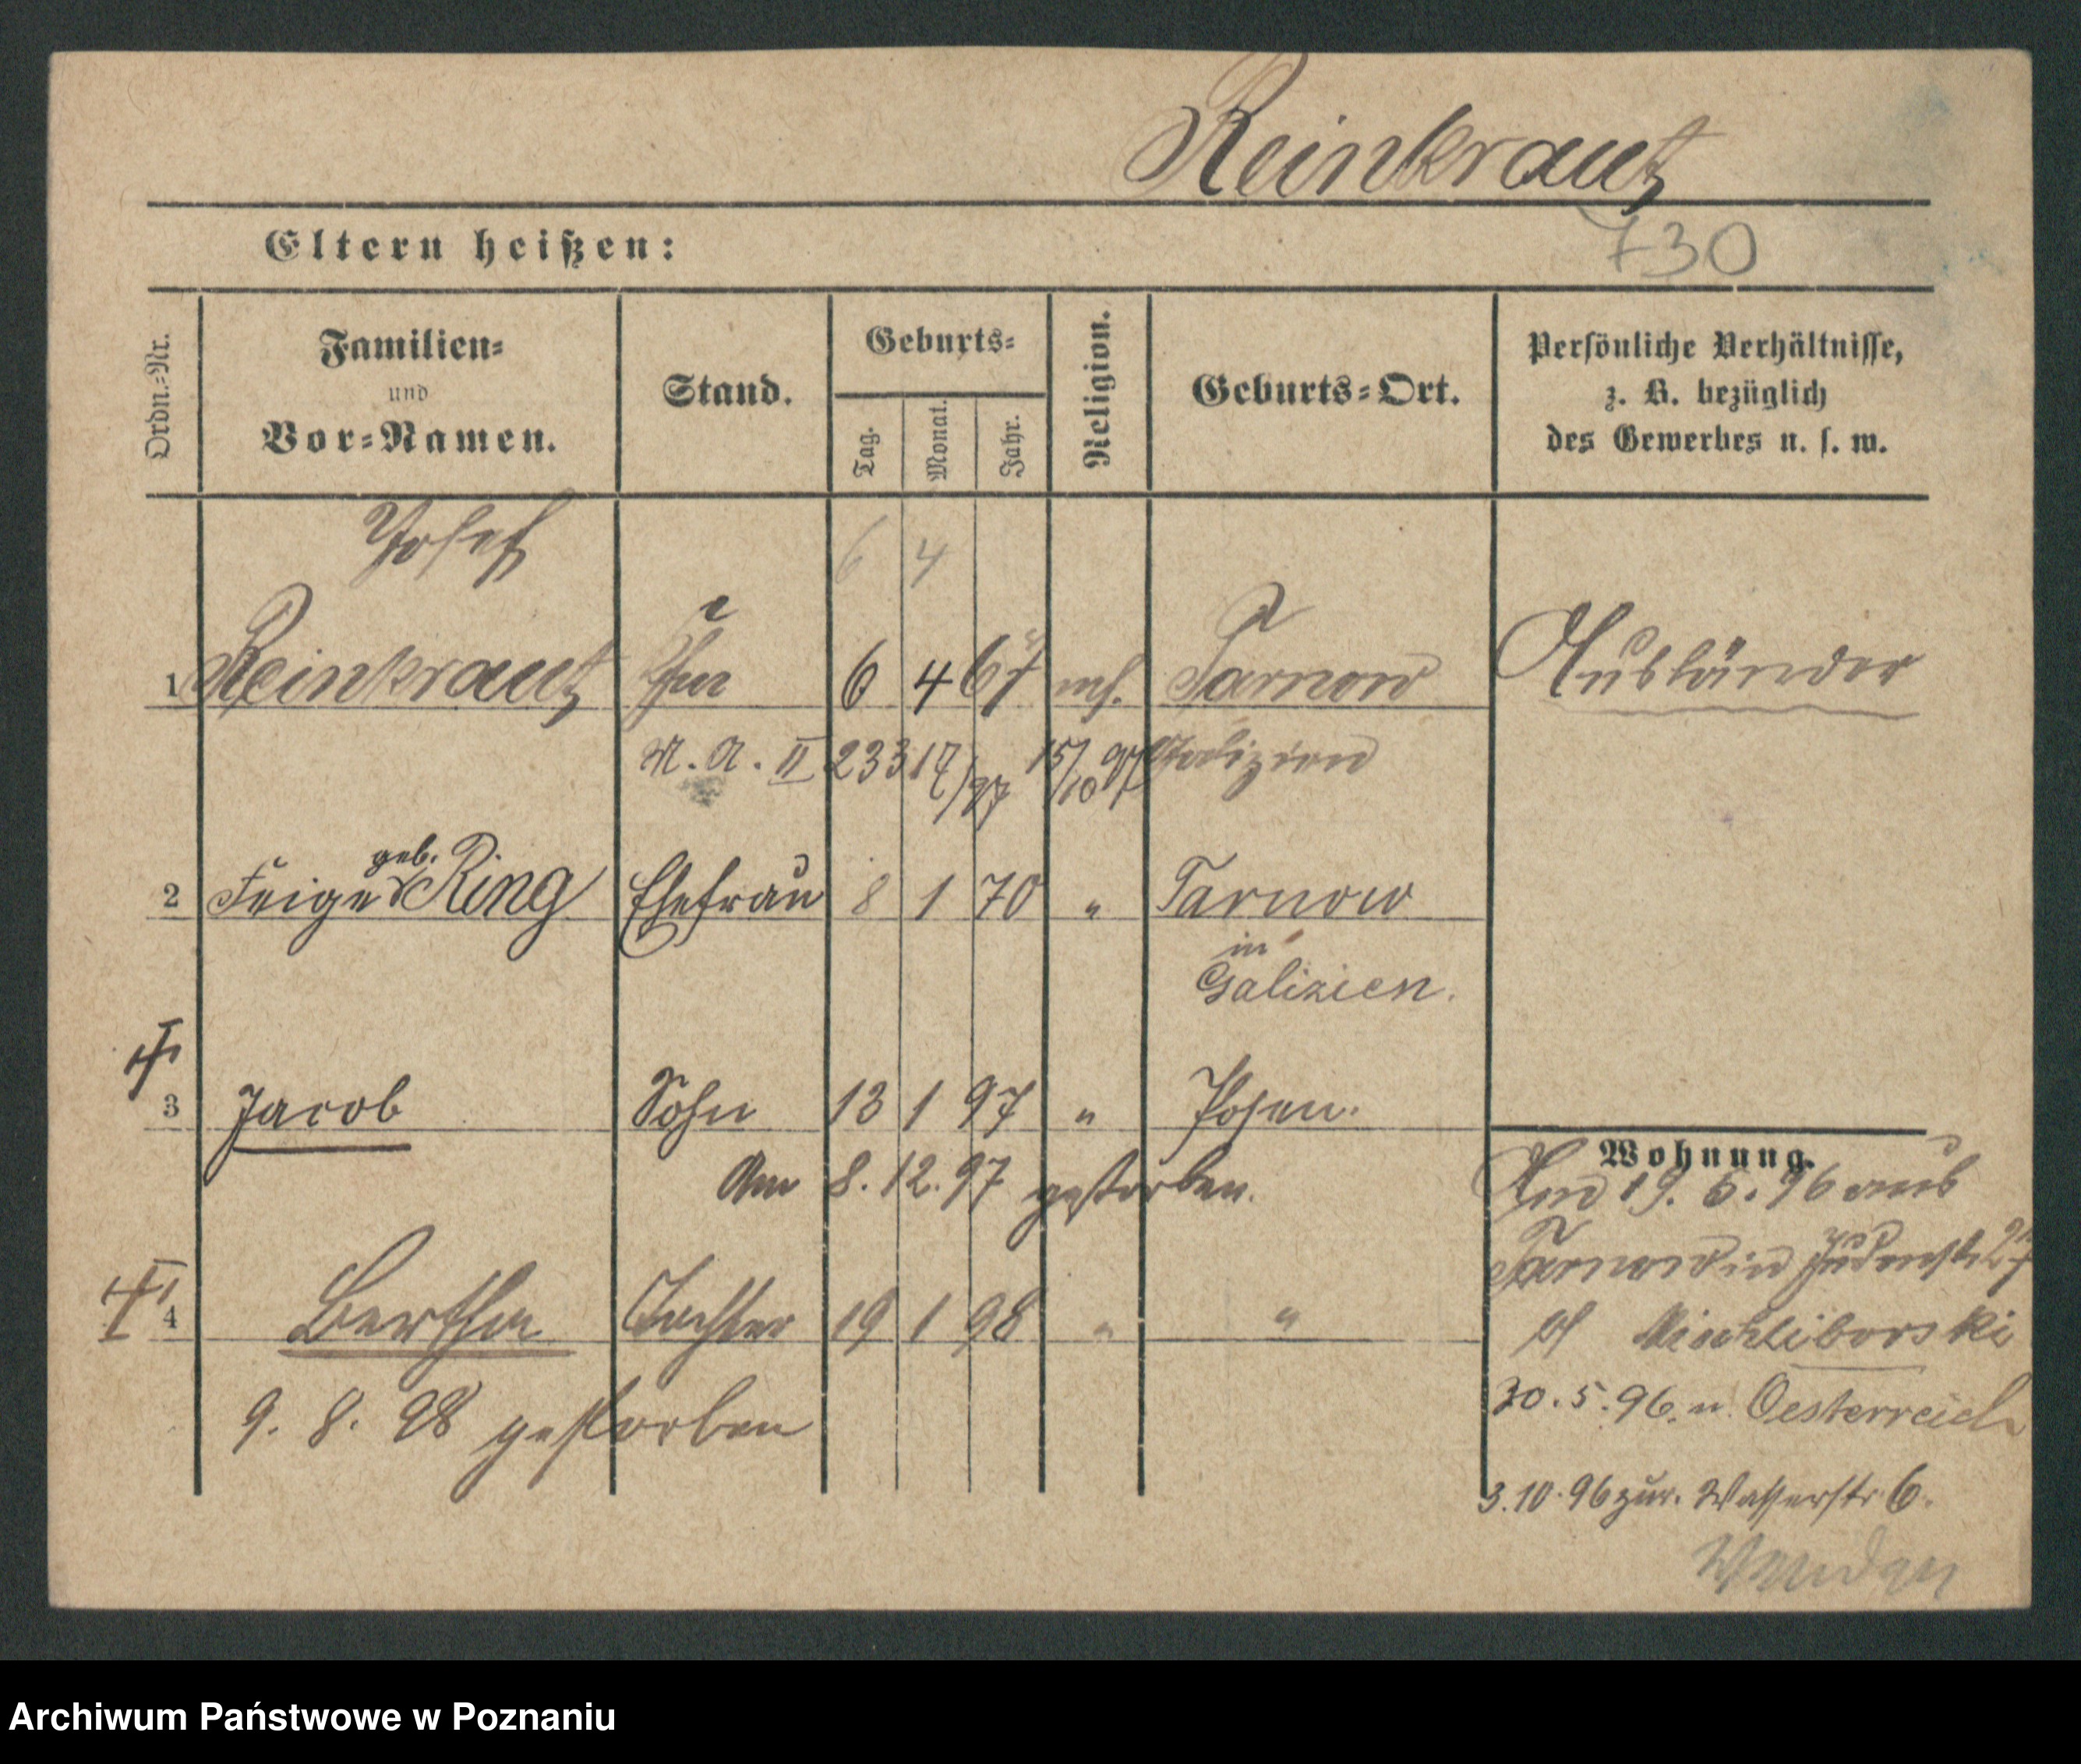 Reinkraut
730
Eltern heißen:
Ordn.-Nr.
Familien-
und
Vor-Namen.
Stand.
Geburts-
Tag.
Monat.
Jahr.
Religion.
Geburts-Ort.
Persönliche Verhältnisse,
z. B. bezüglich
des Gewerbes u. s. w.
Josef 6 4
1 Reinkraut 6 4 67 Tarnow Ausländer
M. A. II 233 15/10 97 Galizien
geb.
2 Feige Ring Ehefrau 8 1 70 " Tarnow
in
Galizien.
3 Jacob Sohn 13 1 97 " Posen.
Am 8. 12. 97 gestorben.
4 Bertha Tochter 19 1 98 " "
9. 8. 98 gestorben
Wohnung.
Am 19. 5. 96 aus
Tarnow in Judenstr. 27
bei Mischliborski
30. 5. 96. n. Oesterreich
3. 10. 96 zur. Wasserstr. 6.
Wenden
Archiwum Państwowe w Poznaniu